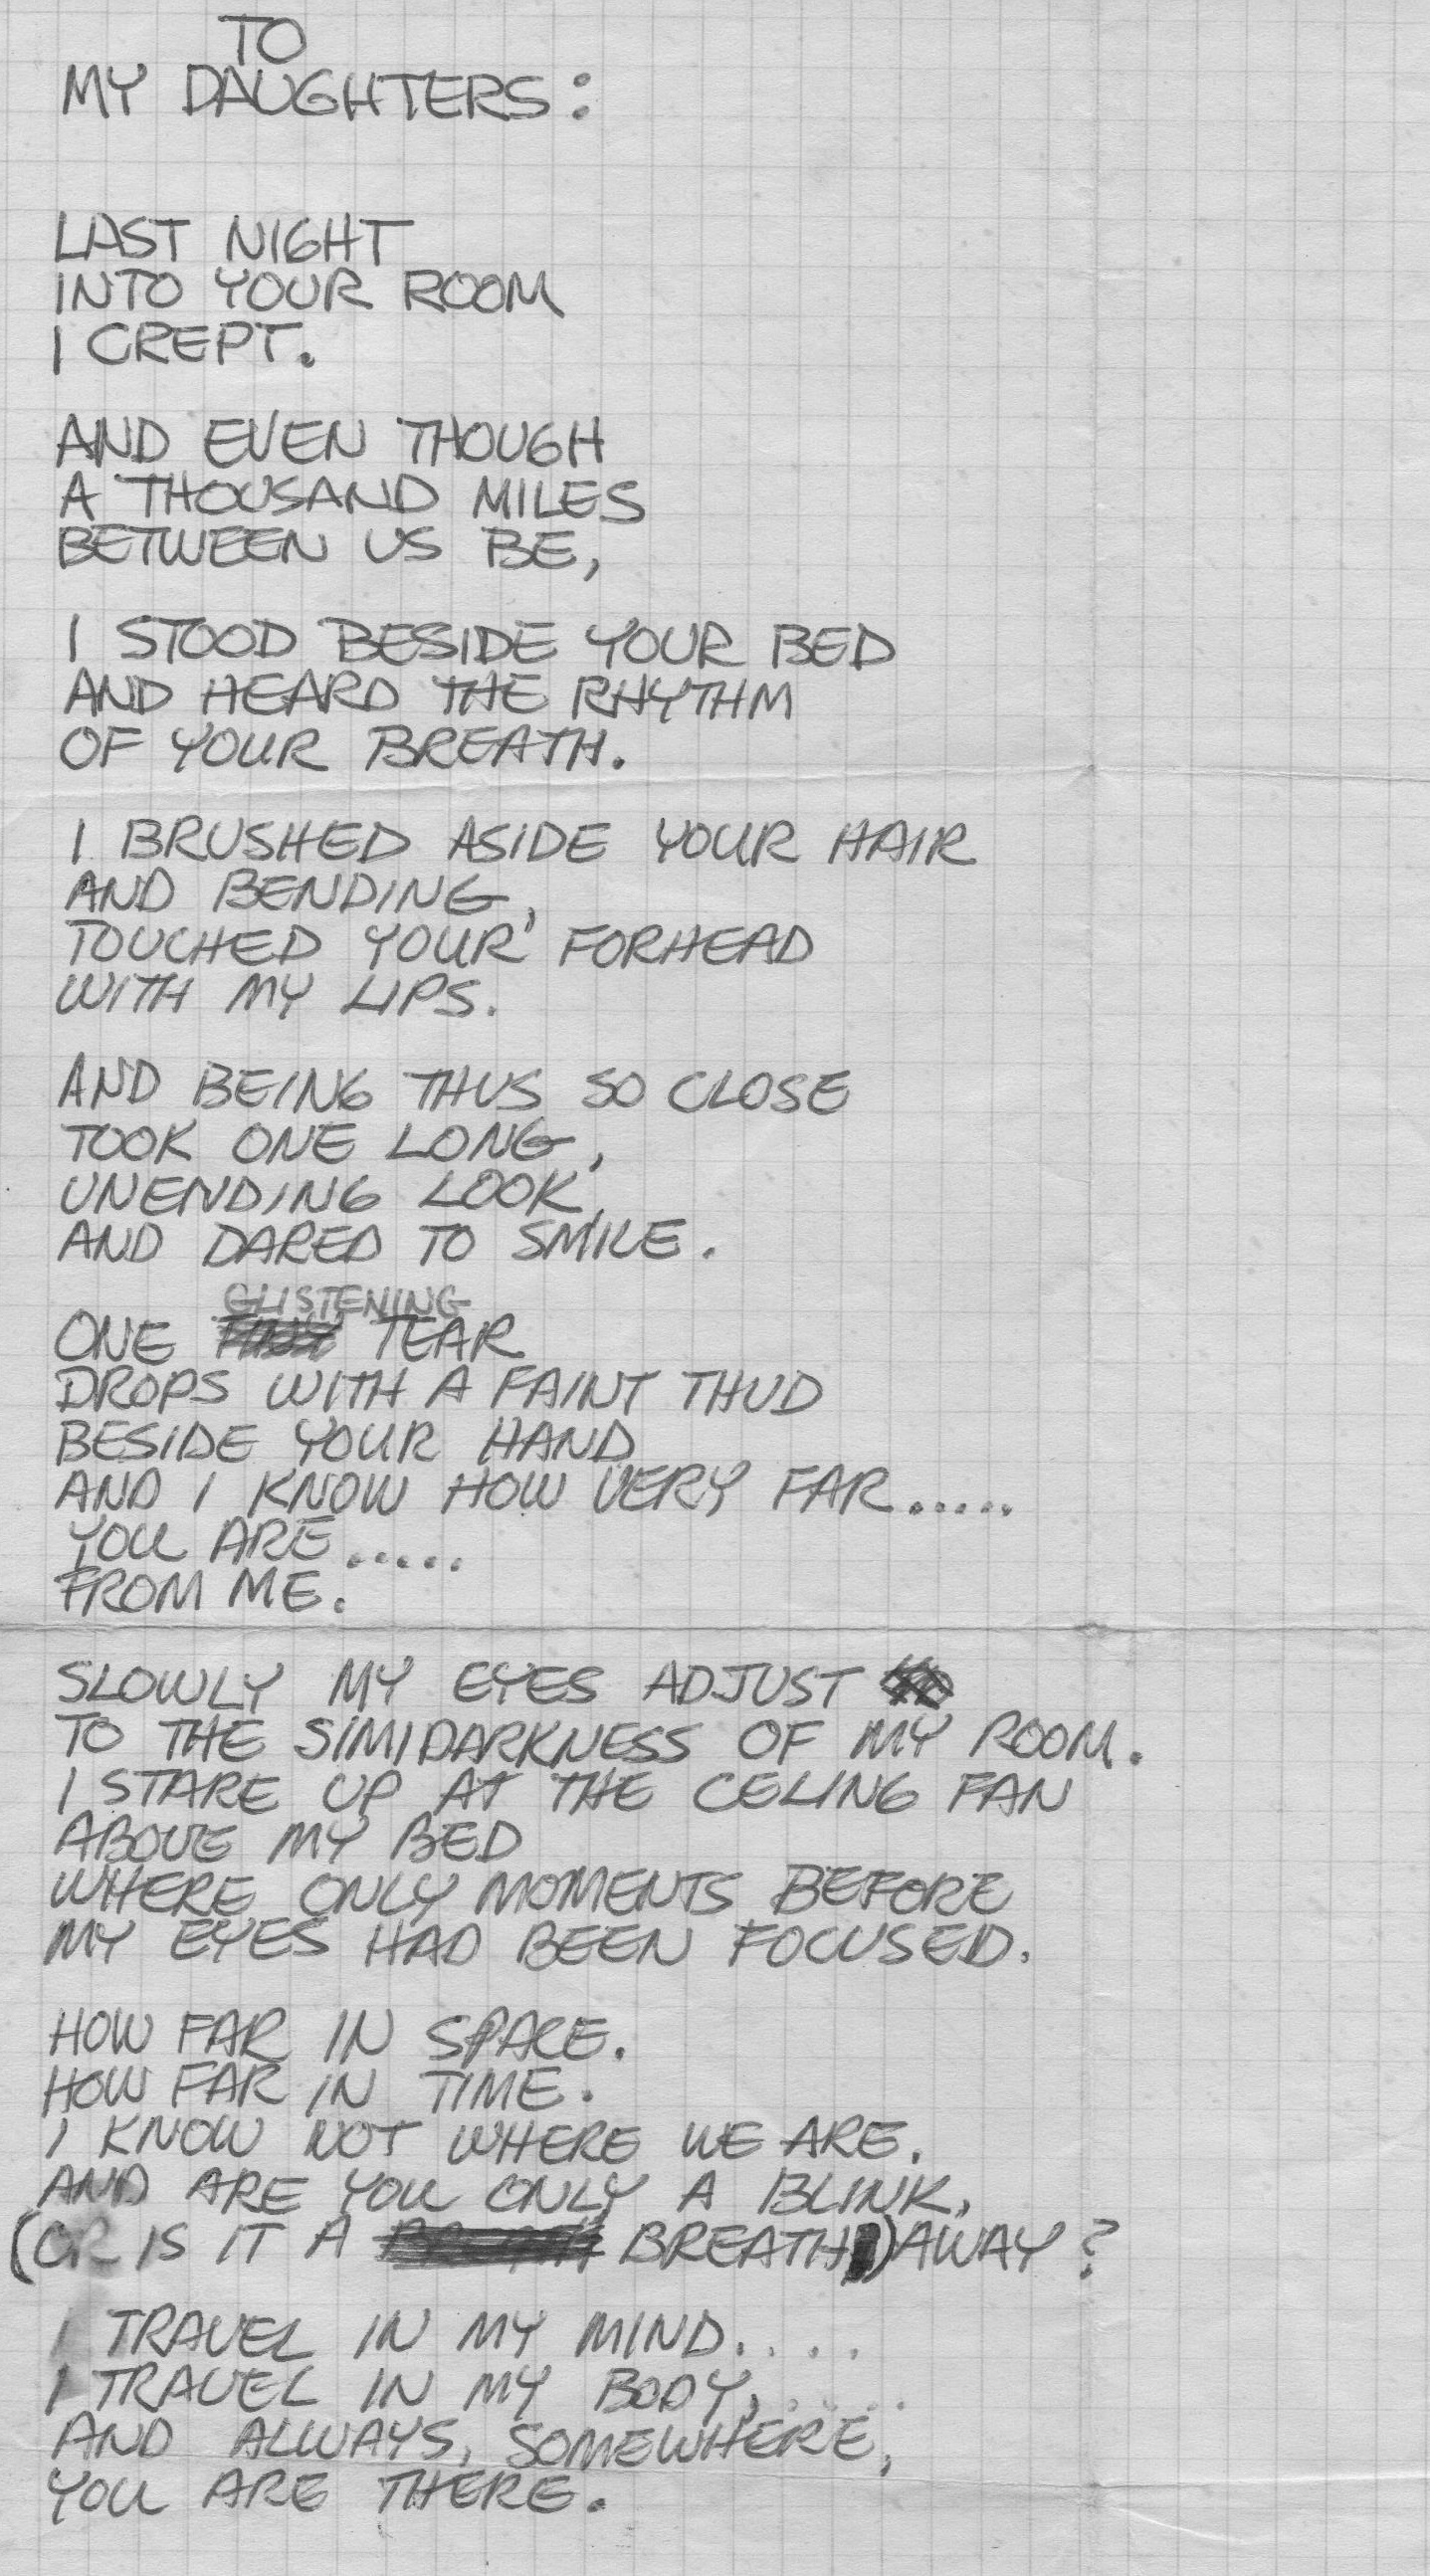 TO
MY DAUGHTERS:
LAST NIGHT
INTO YOUR ROOM
I CREPT.
AND EVEN THOUGH
A THOUSAND MILES
BETWEEN US BE,
I STOOD BESIDE YOUR BED
AND HEARD THE RHYTHM
OF YOUR BREATH.
I BRUSHED ASIDE YOUR HAIR
AND BENDING,
TOUCHED YOUR FORHEAD
WITH MY LIPS.
AND BEING THUS SO CLOSE
TOOK ONE LONG,
UNENDING LOOK,
AND DARED TO SMILE.
GLISTENING
ONE TEAR
DROPS WITH A FAINT THUD
BESIDE YOUR HAND
AND I KNOW HOW VERY FAR.....
YOU ARE.....
FROM ME.
SLOWLY MY EYES ADJUST
TO THE SIMIDARKNESS OF MY ROOM.
I STARE UP AT THE CELING FAN
ABOVE MY BED
WHERE ONLY MOMENTS BEFORE
MY EYES HAD BEEN FOCUSED.
HOW FAR IN SPACE.
HOW FAR IN TIME.
I KNOW NOT WHERE WE ARE.
AND ARE YOU ONLY A BLINK,
(OR IS IT A BREATH) AWAY?
I TRAVEL IN MY MIND....
I TRAVEL IN MY BODY,.....
AND ALWAYS, SOMEWHERE,
YOU ARE THERE.